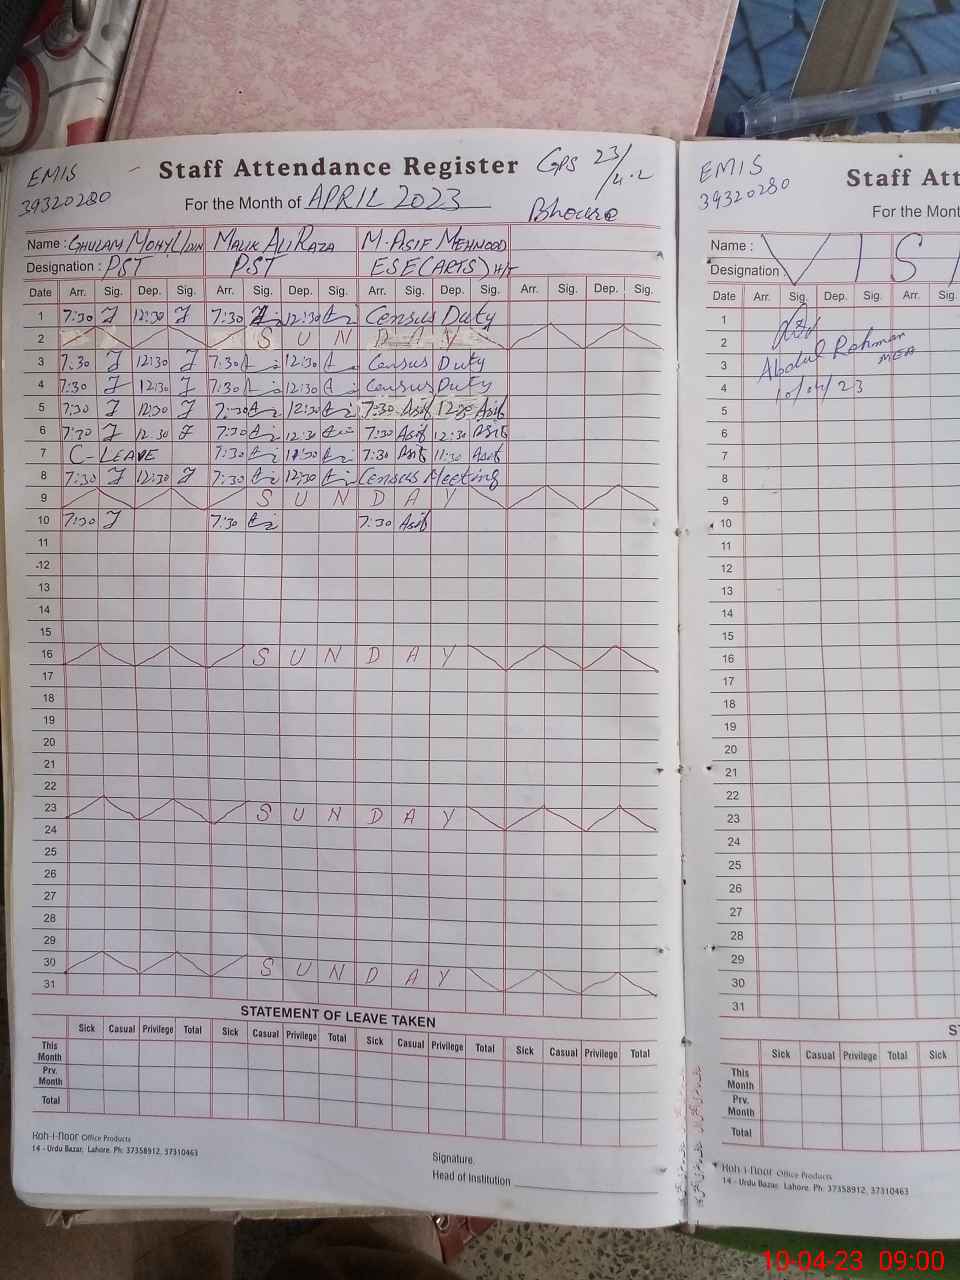 EMIS
39320280
Staff Attendance Register
GPS 23/4.L
For the Month of APRIL 2023
Name : GHULAM MOHYUDIN MALIK ALI RAZA M. ASIF MEHMOOD
Designation : PST PST ESE (ARTS) H/T
Date Arr. Sig. Dep. Sig. Arr. Sig. Dep. Sig. Arr. Sig. Dep. Sig. Arr. Sig. Dep. Sig.
1 7:30 12:30 7:30 12:30 Census Duty
2 S U N D A Y
3 7:30 12:30 7:30 12:30 Census Duty
4 7:30 12:30 7:30 12:30 Census Duty
5 7:30 12:30 7:30 12:30 7:30 Asif 12:30 Asif
6 7:30 12:30 7:30 12:30 7:30 Asif 12:30 Asif
7 C-LEAVE 7:30 11:30 7:30 Asif 11:30 Asif
8 7:30 12:30 7:30 12:30 Census Meeting
9 S U N D A Y
10 7:30 7:30 7:30 Asif
11
12
13
14
15
16 S U N D A Y
17
18
19
20
21
22
23 S U N D A Y
24
25
26
27
28
29
30 S U N D A Y
31
STATEMENT OF LEAVE TAKEN
Sick Casual Privilege Total Sick Casual Privilege Total Sick Casual Privilege Total Sick Casual Privilege Total
This Month
Prv. Month
Total
Koh-i-Noor Office Products
14 - Urdu Bazar, Lahore. Ph: 37358912, 37310463
Signature,
Head of Institution
EMIS
39320280
Staff Att
For the Mont
Name : V I S I
Designation
Date Arr. Sig. Dep. Sig. Arr. Sig.
1
2
3
4
5
6
7
8
9
10
11
12
13
14
15
16
17
18
19
20
21
22
23
24
25
26
27
28
29
30
31
Abdul Rehman
MEA
10/04/23
ST
Sick Casual Privilege Total Sick
This Month
Prv. Month
Total
Koh-i-Noor Office Products
14 - Urdu Bazar, Lahore. Ph: 37358912, 37310463
10-04-23 09:00